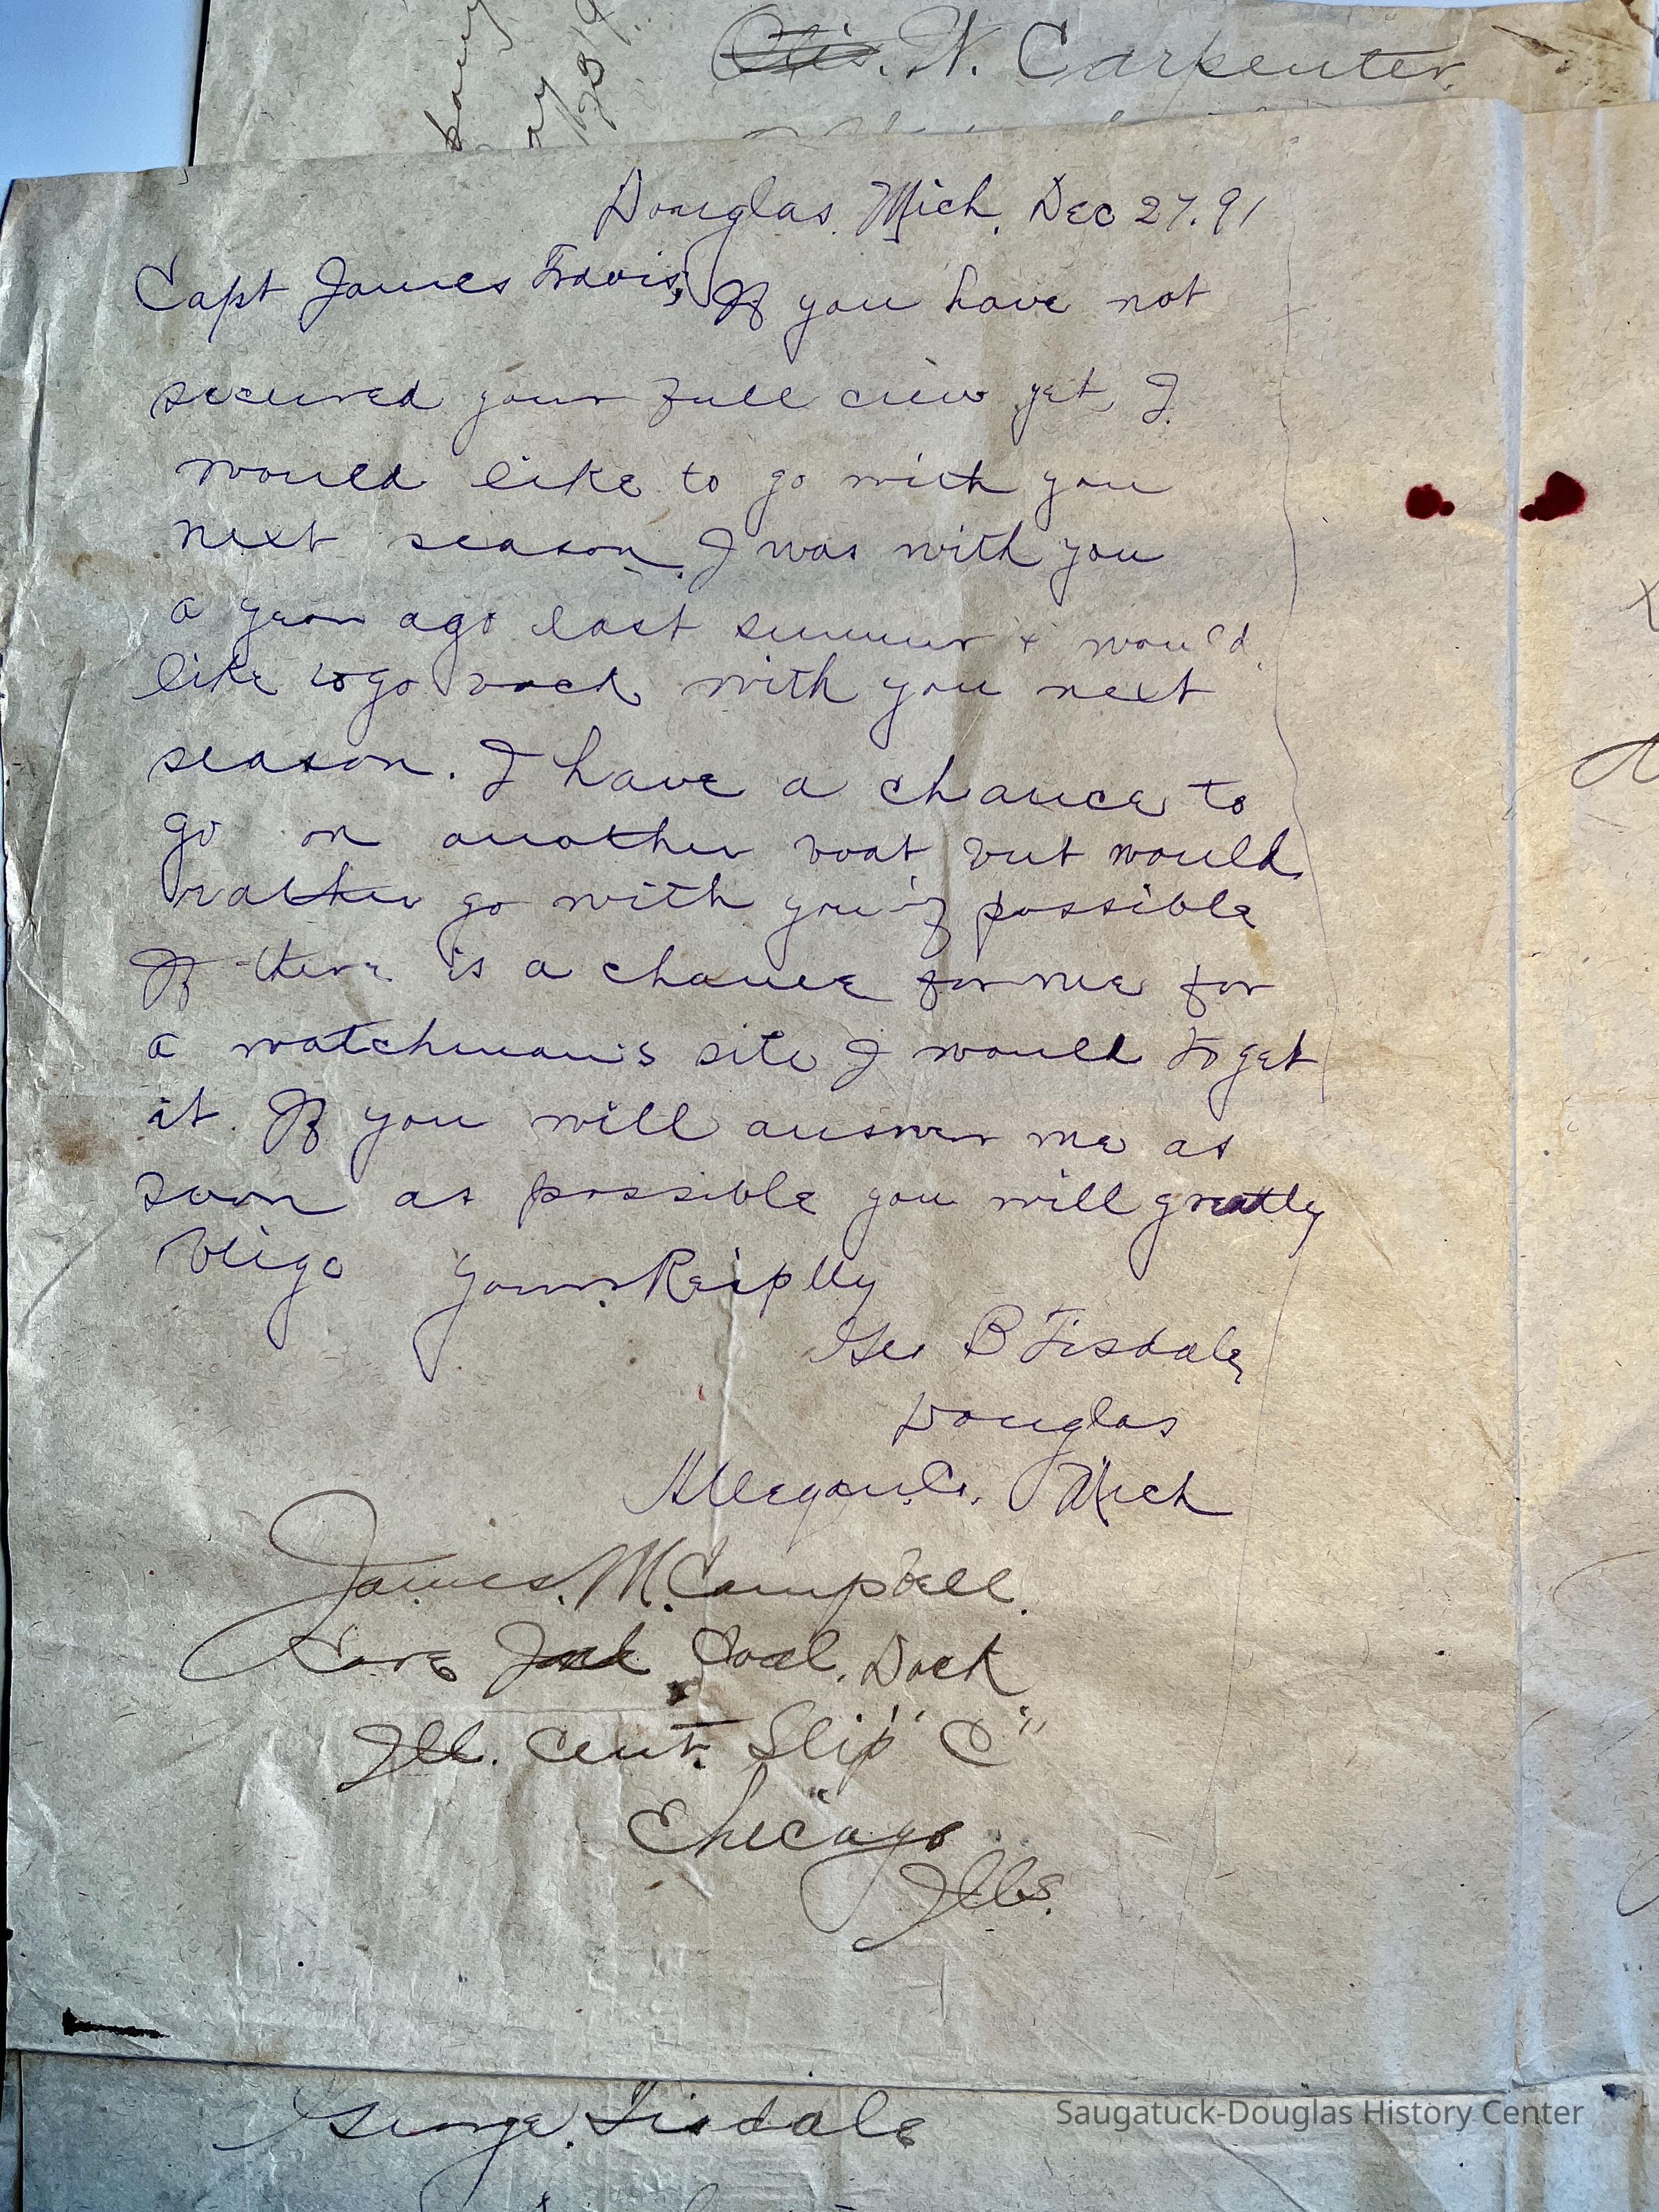 W. Carpenter
Douglas. Mich. Dec 27. 91
Capt James Travis; If you have not
secured your full crew yet, I
would like to go with you
next season. I was with you
a year ago last summer & would
like to go back with you next
season. I have a chance to
go on another boat but would
rather go with you if possible
If there is a chance for me for
a watchman's site I would to get
it. If you will answer me as
soon as possible you will greatly
blige Yours Resplly
Geo B Tisdale
Douglas
Allegan Co. Mich
James. M. Campbell.
Care Coal. Dock
Ill. Cent. Slip "C"
Chicago
Ills.
George. Tisdale
Saugatuck-Douglas History Center